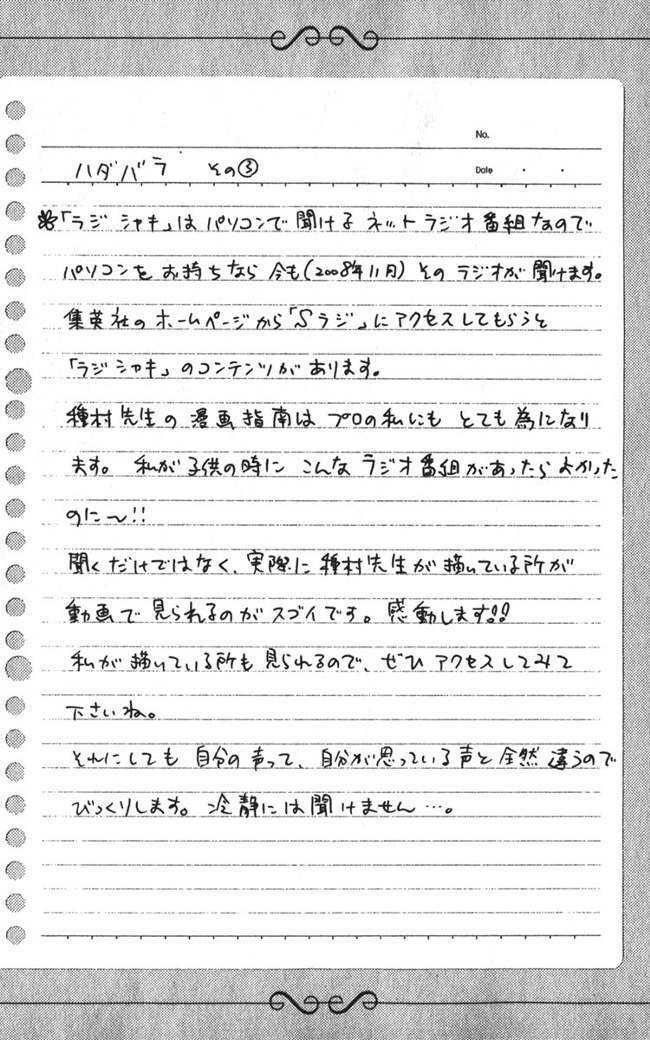 No.
ハダバラ その③
Date ・ ・
※「ラジシャキ」はパソコンで聞けるネットラジオ番組なので
パソコンをお持ちなら今も(2008年11月)そのラジオが聞けます。
集英社のホームページから「Sラジ」にアクセスしてもらうと
「ラジシャキ」のコンテンツがあります。
種村先生の漫画指南はプロの私にもとても為になり
ます。私が子供の時にこんなラジオ番組があったらよかった
のに〜!!
聞くだけではなく、実際に種村先生が描いている所が
動画で見られるのがスゴイです。感動します!!
私が描いている所も見られるので、ぜひアクセスしてみて
下さいね。
それにしても自分の声って、自分が思っている声と全然違うので
びっくりします。冷静には聞けません…。